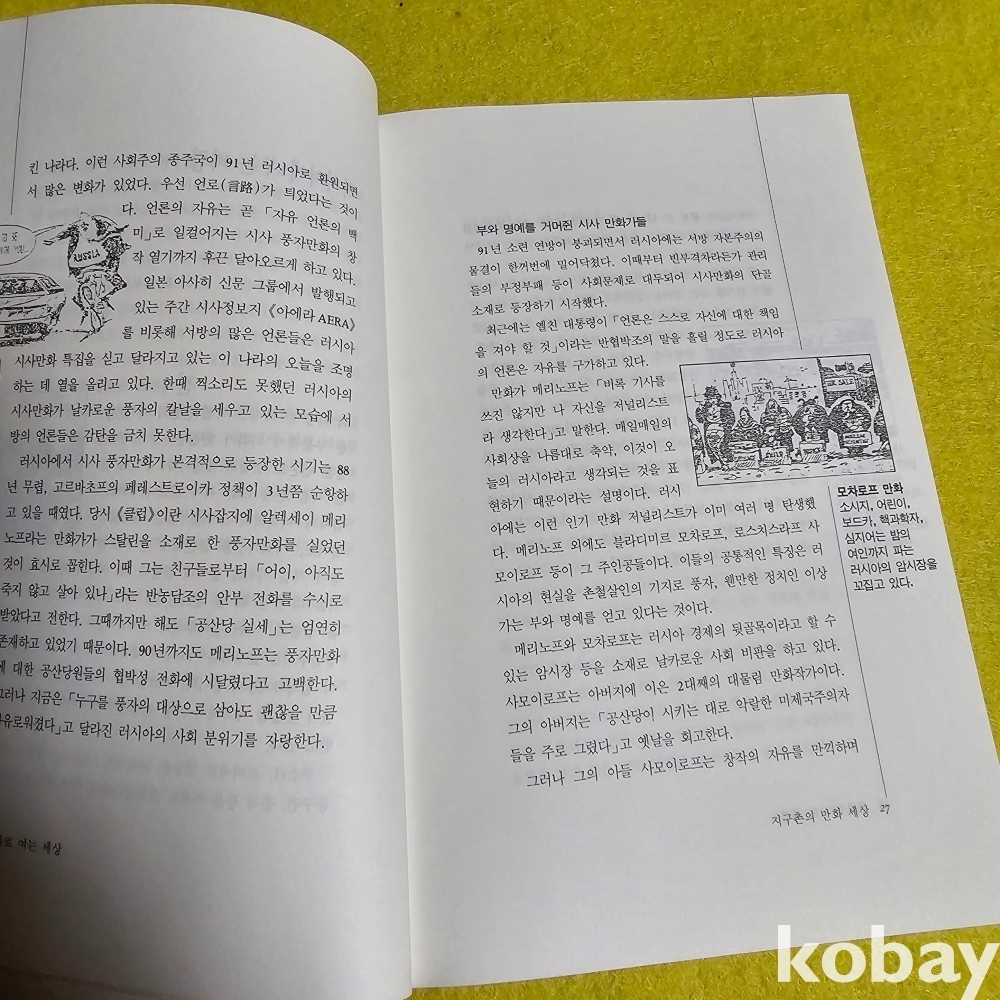 킨 나라다. 이런 사회주의 종주국이 91년 러시아로 환원되면
서 많은 변화가 있었다. 우선 언로(言路)가 틔었다는 것이
다. 언론의 자유는 곧 「자유 언론의 백
미」로 일컬어지는 시사 풍자만화의 창
작 열기까지 후끈 달아오르게 하고 있다.
일본 아사히 신문 그룹에서 발행되고
있는 주간 시사정보지 《아에라 AERA》
를 비롯해 서방의 많은 언론들은 러시아
시사만화 특집을 싣고 달라지고 있는 이 나라의 오늘을 조명
하는 데 열을 올리고 있다. 한때 찍소리도 못했던 러시아의
시사만화가 날카로운 풍자의 칼날을 세우고 있는 모습에 서
방의 언론들은 감탄을 금치 못한다.
러시아에서 시사 풍자만화가 본격적으로 등장한 시기는 88
년 무렵, 고르바초프의 페레스트로이카 정책이 3년쯤 순항하
고 있을 때였다. 당시 《클럽》이란 시사잡지에 알렉세이 메리
노프라는 만화가가 스탈린을 소재로 한 풍자만화를 실었던
것이 효시로 꼽힌다. 이때 그는 친구들로부터 「어이, 아직도
죽지 않고 살아 있나」라는 반농담조의 안부 전화를 수시로
받았다고 전한다. 그때까지만 해도 「공산당 실세」는 엄연히
존재하고 있었기 때문이다. 90년까지도 메리노프는 풍자만화
에 대한 공산당원들의 협박성 전화에 시달렸다고 고백한다.
그러나 지금은 「누구를 풍자의 대상으로 삼아도 괜찮을 만큼
자유로워졌다」고 달라진 러시아의 사회 분위기를 자랑한다.
여는 세상
RUSSIA
부와 명예를 거머쥔 시사 만화가들
91년 소련 연방이 붕괴되면서 러시아에는 서방 자본주의의
물결이 한꺼번에 밀어닥쳤다. 이때부터 빈부격차라든가 관리
들의 부정부패 등이 사회문제로 대두되어 시사만화의 단골
소재로 등장하기 시작했다.
최근에는 옐친 대통령이 「언론은 스스로 자신에 대한 책임
을 져야 할 것」이라는 반협박조의 말을 흘릴 정도로 러시아
의 언론은 자유를 구가하고 있다.
만화가 메리노프는 「비록 기사를
쓰진 않지만 나 자신을 저널리스트
라 생각한다」고 말한다. 매일매일의
사회상을 나름대로 축약, 이것이 오
늘의 러시아라고 생각되는 것을 표
현하기 때문이라는 설명이다. 러시
아에는 이런 인기 만화 저널리스트가 이미 여러 명 탄생했
다. 메리노프 외에도 블라디미르 모차로프, 로스치스라프 사
모이로프 등이 그 주인공들이다. 이들의 공통적인 특징은 러
시아의 현실을 촌철살인의 기지로 풍자, 웬만한 정치인 이상
가는 부와 명예를 얻고 있다는 것이다.
메리노프와 모차로프는 러시아 경제의 뒷골목이라고 할 수
있는 암시장 등을 소재로 날카로운 사회 비판을 하고 있다.
사모이로프는 아버지에 이은 2대째의 대물림 만화작가이다.
그의 아버지는 「공산당이 시키는 대로 악랄한 미제국주의자
들을 주로 그렸다」고 옛날을 회고한다.
그러나 그의 아들 사모이로프는 창작의 자유를 만끽하며
모차로프 만화
소시지, 어린이,
보드카, 핵과학자,
심지어는 밤의
여인까지 파는
러시아의 암시장을
꼬집고 있다.
지구촌의 만화 세상 27
kobay